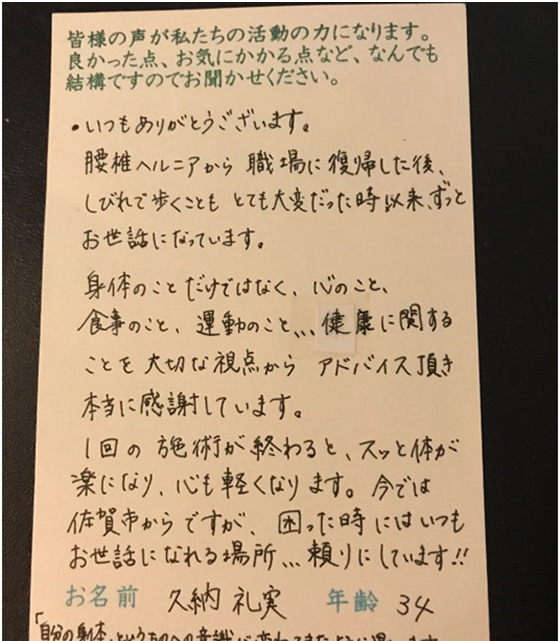 皆様の声が私たちの活動の力になります。
良かった点、お気にかかる点など、なんでも
結構ですのでお聞かせください。
・いつもありがとうございます。
腰椎ヘルニアから 職場に復帰した後、
しびれで歩くことも とても大変だった時以来、ずっと
お世話になっています。
身体のことだけではなく、心のこと、
食事のこと、運動のこと、、、健康に関する
ことを 大切な視点から アドバイス頂き
本当に感謝しています。
1回の 施術が終わると、スッと体が
楽になり、心も軽くなります。今では
佐賀市からですが、困った時にはいつも
お世話になれる場所、、、頼りにしています!!
お名前 久納 礼実 年齢 34
「自分の身体」というものへの意識が変わってきたように思います